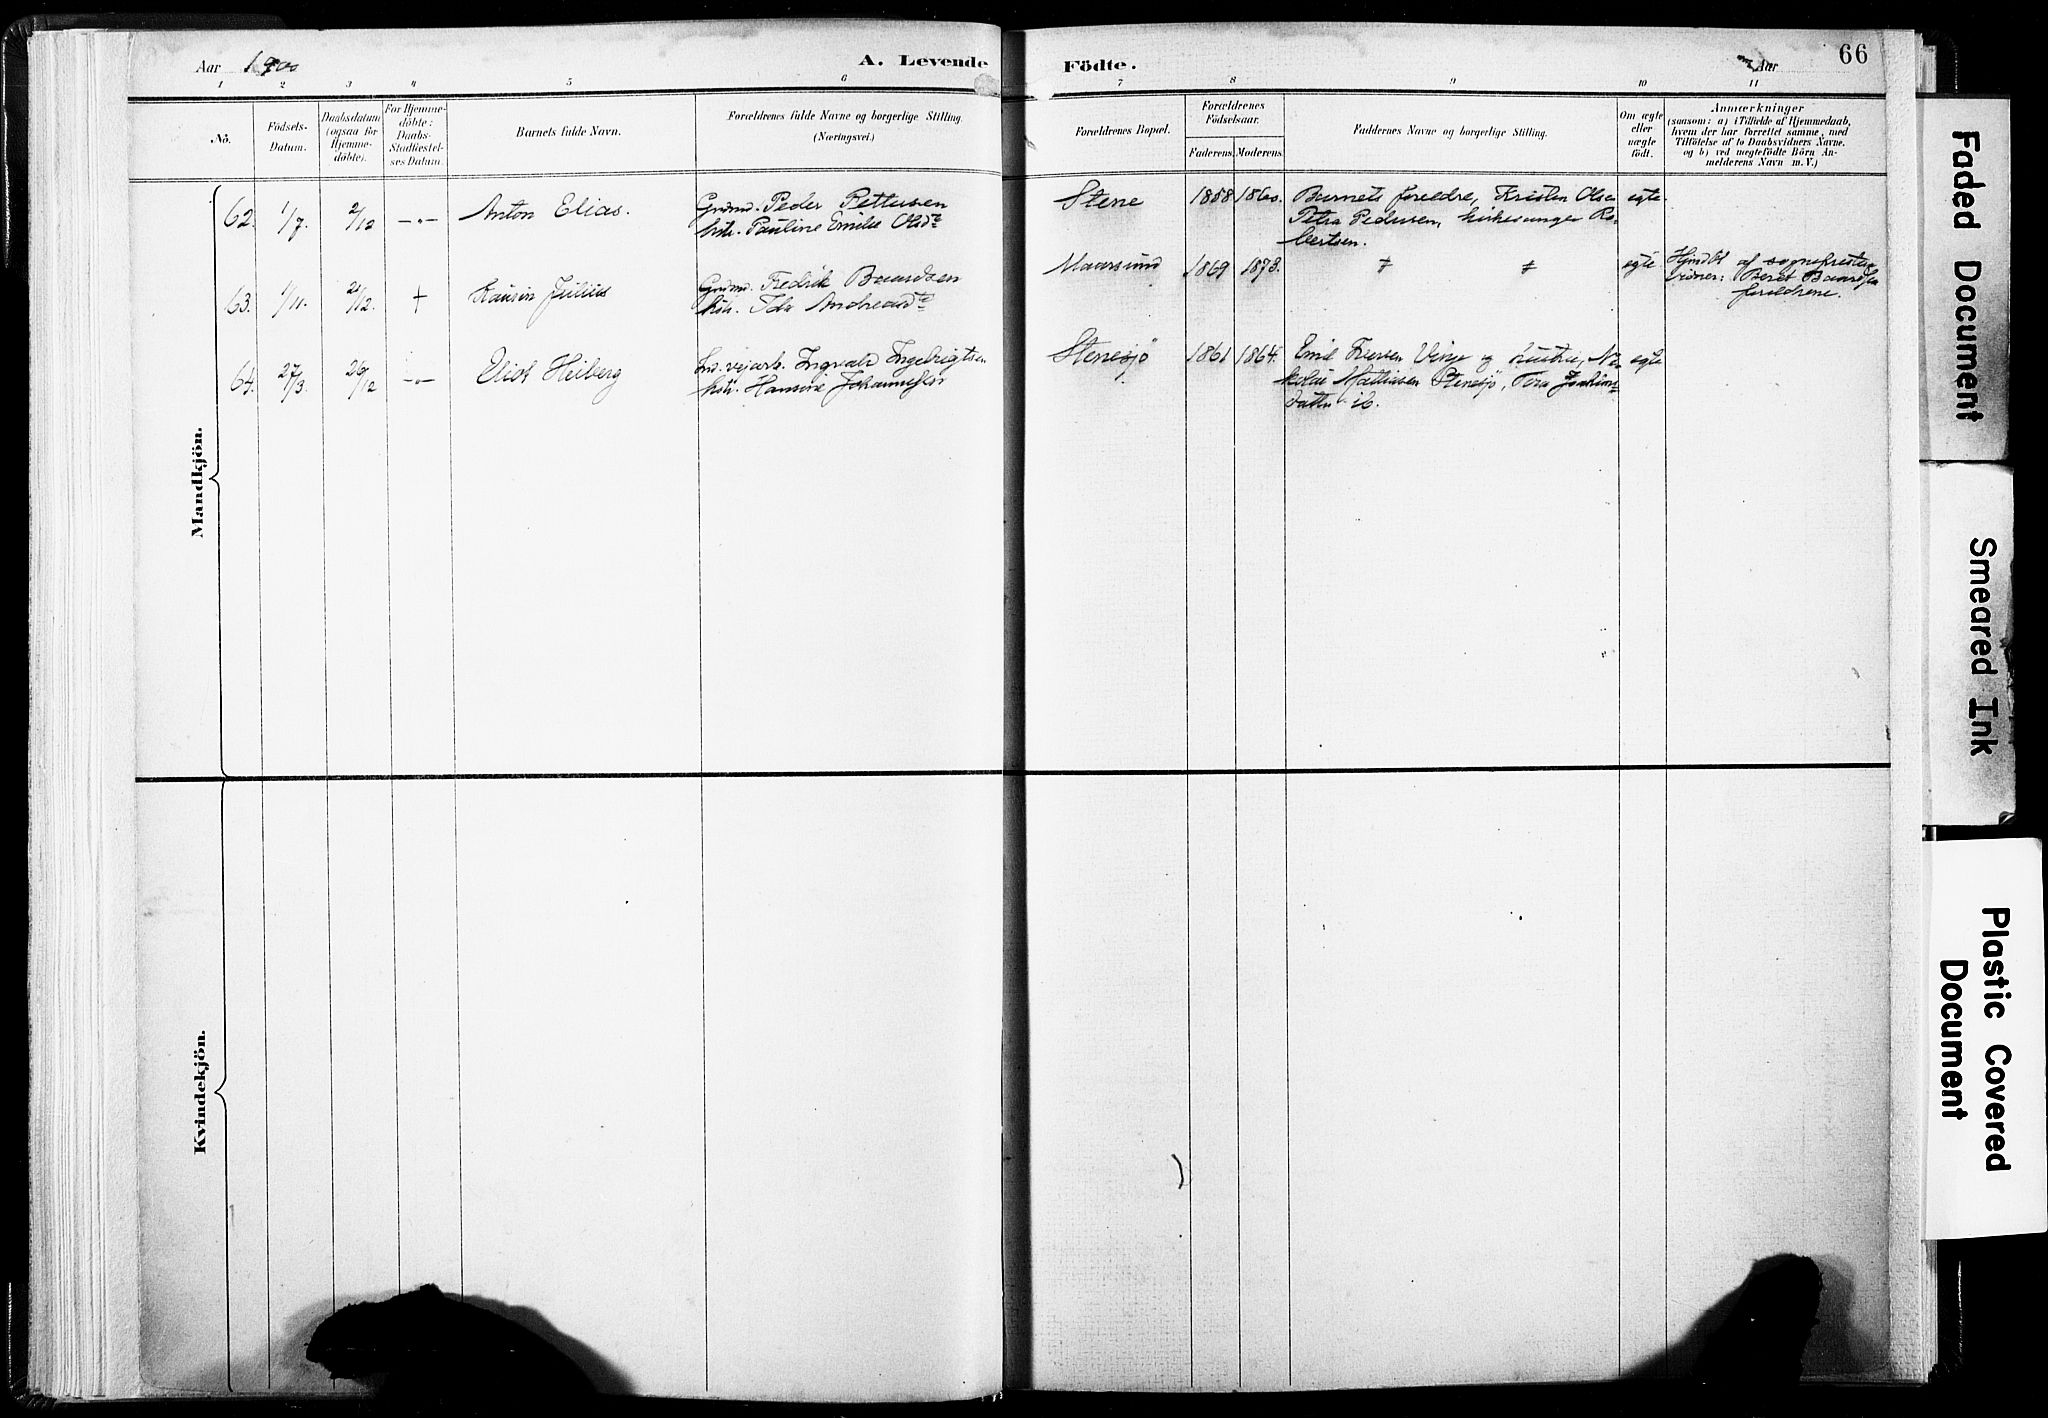 Aar 1900
A. Levende Födte.
Aar
66
1 2 3 4 5 6 7 8 9 10 11
No.
Födsels-
Datum.
Daabsdatum
(ogsaa för
Hjemme-
döbte).
For Hjemme-
döbte:
Daabs-
Stadfæstel-
ses Datum.
Barnets fulde Navn.
Forældrenes fulde Navne og borgerlige Stilling.
(Næringsvei.)
Forældrenes Bopæl.
Forældrenes
Födselsaar.
Faderens. Moderens.
Faddernes Navne og borgerlige Stilling.
Om ægte
eller
uægte
födt.
Anmærkninger
(saasom: a) i Tilfælde af Hjemmedaab,
hvem der har forrettet samme, med
Tilföielse af to Daabsvidners Navne.
og b) ved uægtefödte Börn An-
melderens Navn m. V.)
Mandkjön.
62. 1/7. 2/12 -"- Anton Elias.
Grdmd. Peder Pettersen
hstr. Pauline Emilie Olsdtr
Stene 1858 1860.
Barnets foreldre, Kristen Olsen
Petra Pedersen, kirkesanger Ro-
bertsen.
egte.
63. 1/11. /12. + Julius
Grdmd. Fredrik Baardsen
hstr. Ida Andreasdtr
Maarsund 1869 1873.
egte
Hjmdbt af sognepresten
vidner: Beret Baardsen
foreldrene.
64. 27/3. 26/12 -"- Heiberg
Ind. vejarb. Ingvald Ingebrigtsen
hstr. Hansine
Stenesjö 1861 1864.
Emil Iversen og hustru, Ni-
kolai Mathiasen Stenesjö, Joakims-
datter ib.
egte
Kvindekjön.
Faded Document
Smeared Ink
Plastic Covered
Document